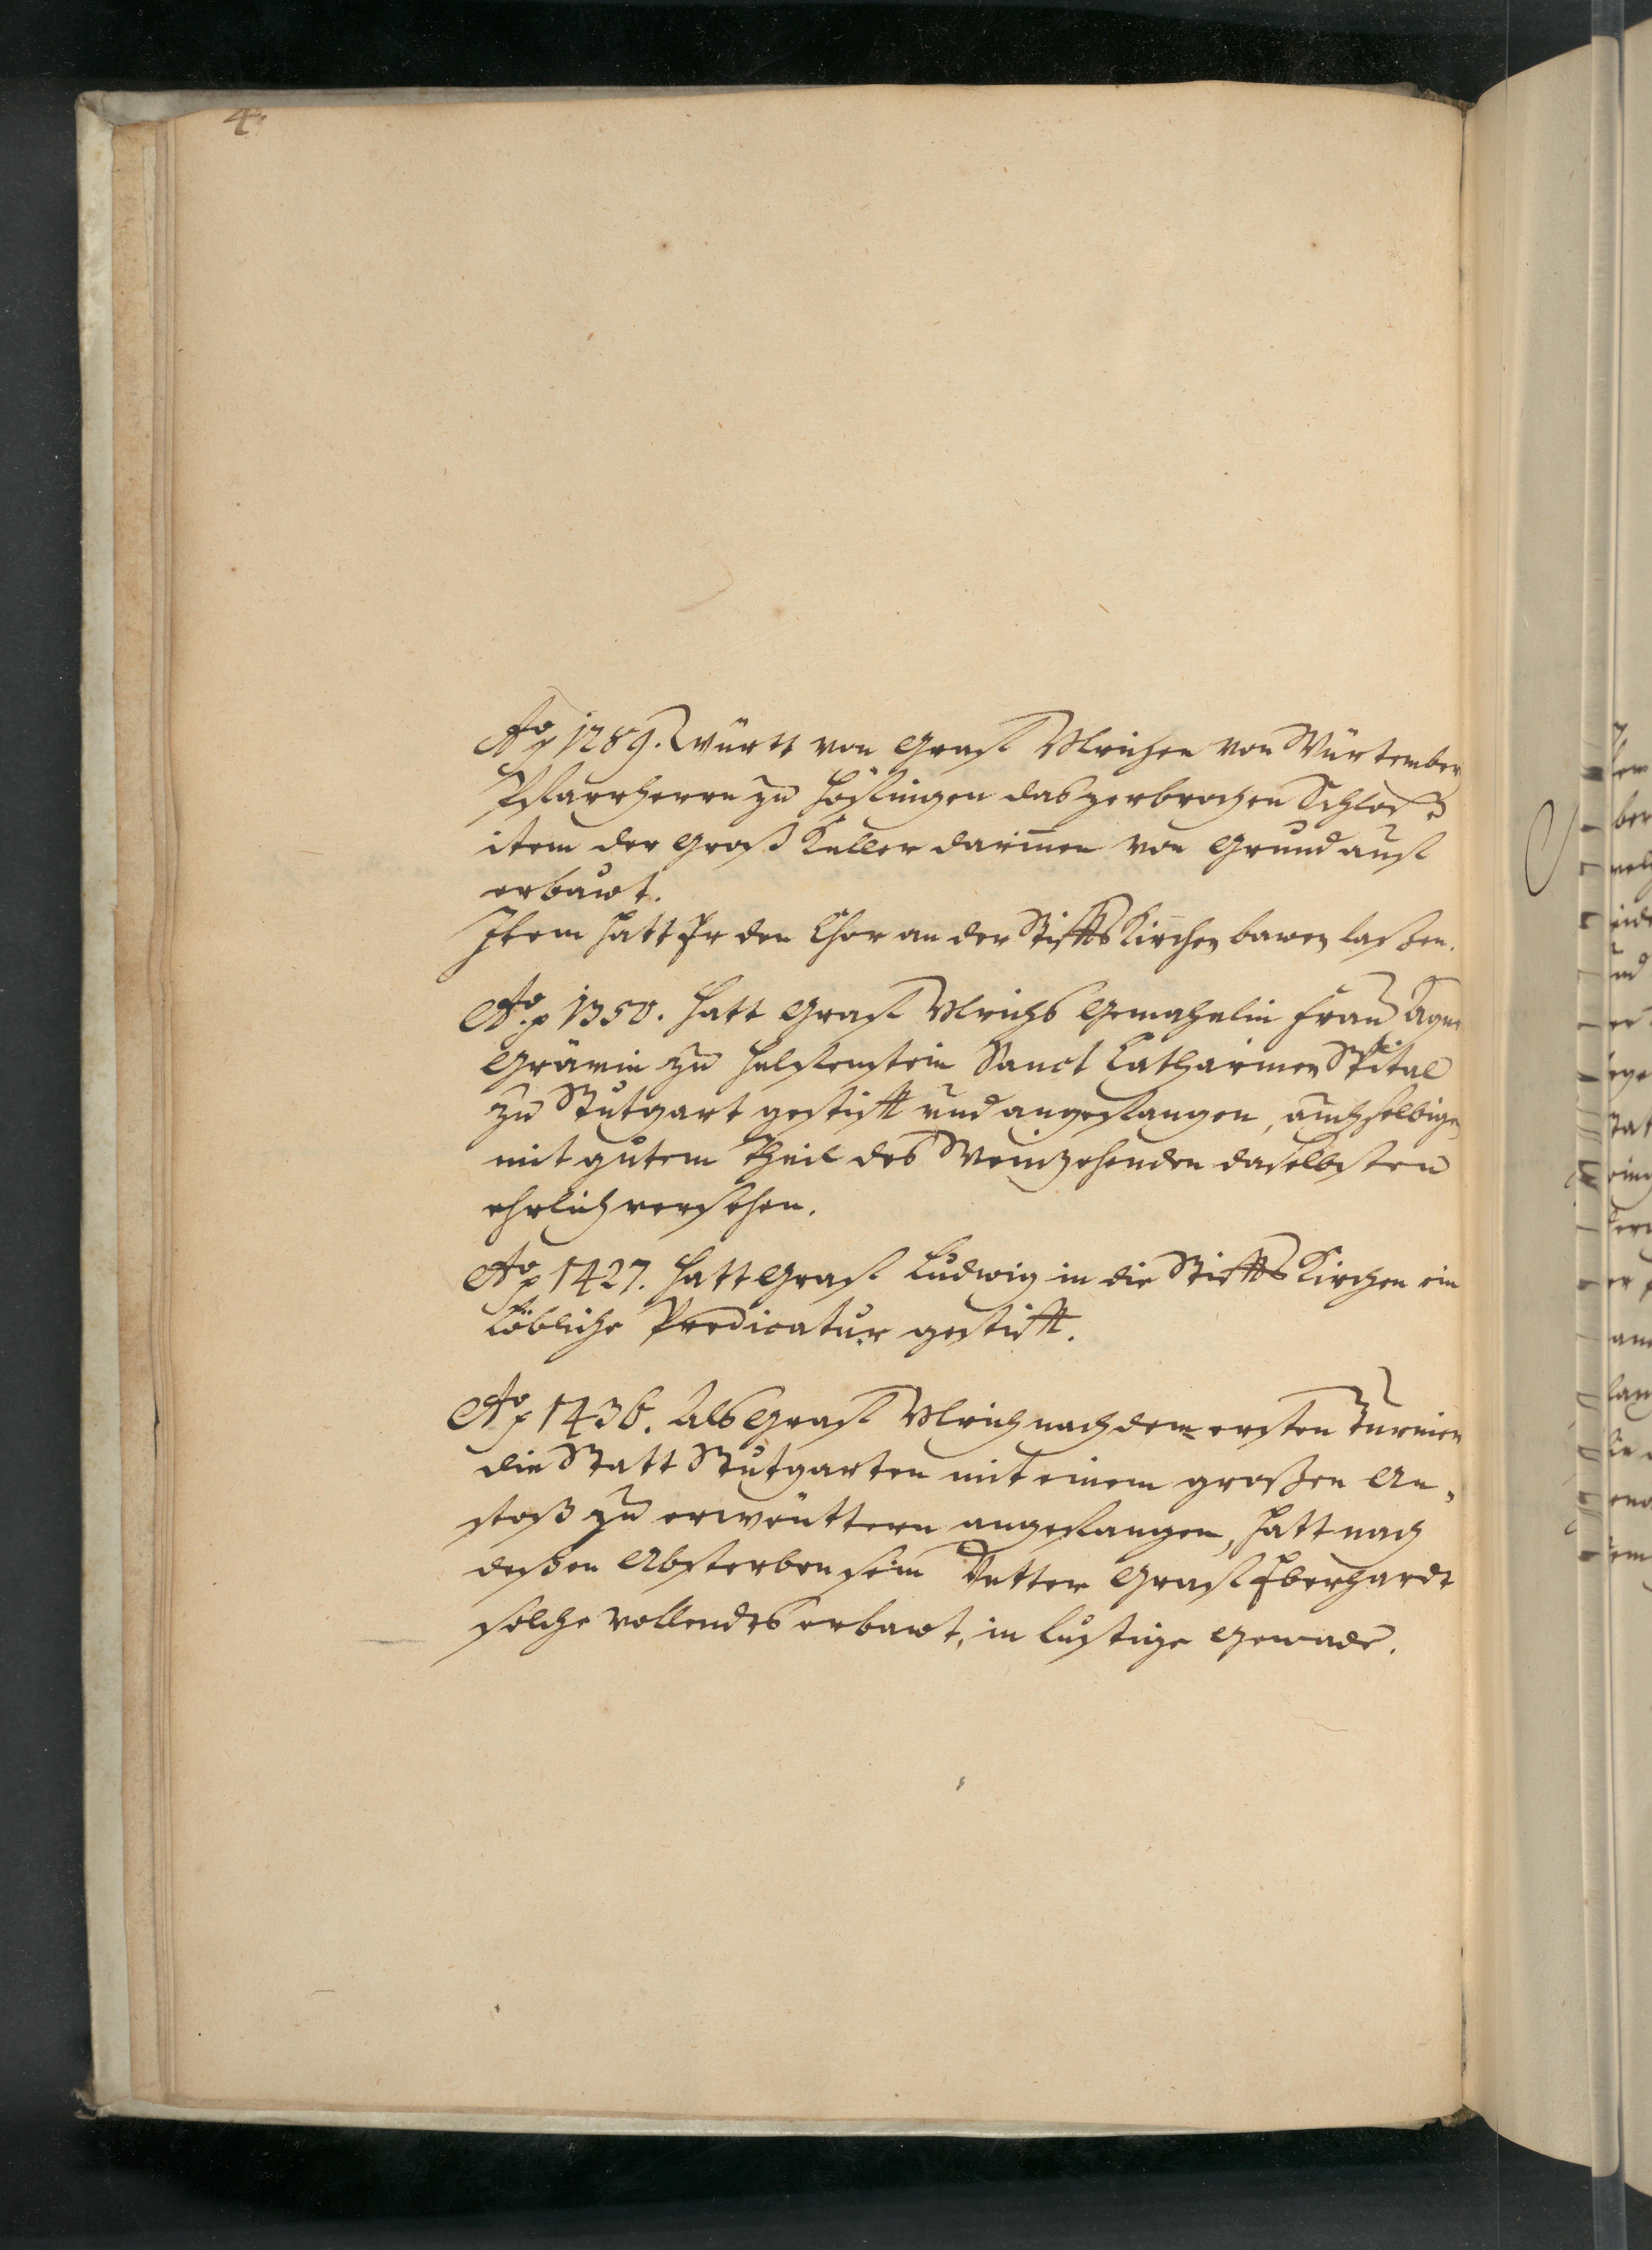 4.
Aō 1289. Württ von Graff Ulrichen von Würtember
Pfarrherrn zu Höffingen das zerbrochen Schloß
item der groß Keller darinnen von Grund auff
erbawt.
Item hatt Er den Chor an der Stiffts Kirchen bawen laßen.
Aō 1350. hatt Graff Ulrichs Gemahelin Fraw Agne
Grävin zu Helffenstein Sanct Catharinen Spital
zu Stutgart gestifft und angefangen, auch selbigen
mit gutem Theil des Weinzehenden daselbsten
ehrlich versehen.
Aō 1427. hatt Graff Ludwig in die Stiffts Kirchen ein
Löbliche Predicatur gestifft.
Aō 1436. Als Graff Ulrich nach dem ersten Turnier
die Statt Stutgarten mit einem großen An„
stoß zu erweittern angefangen, hatt nach
deßen Absterben sein Vetter Graff Eberhardt
solche vollendts erbawt, in lustige